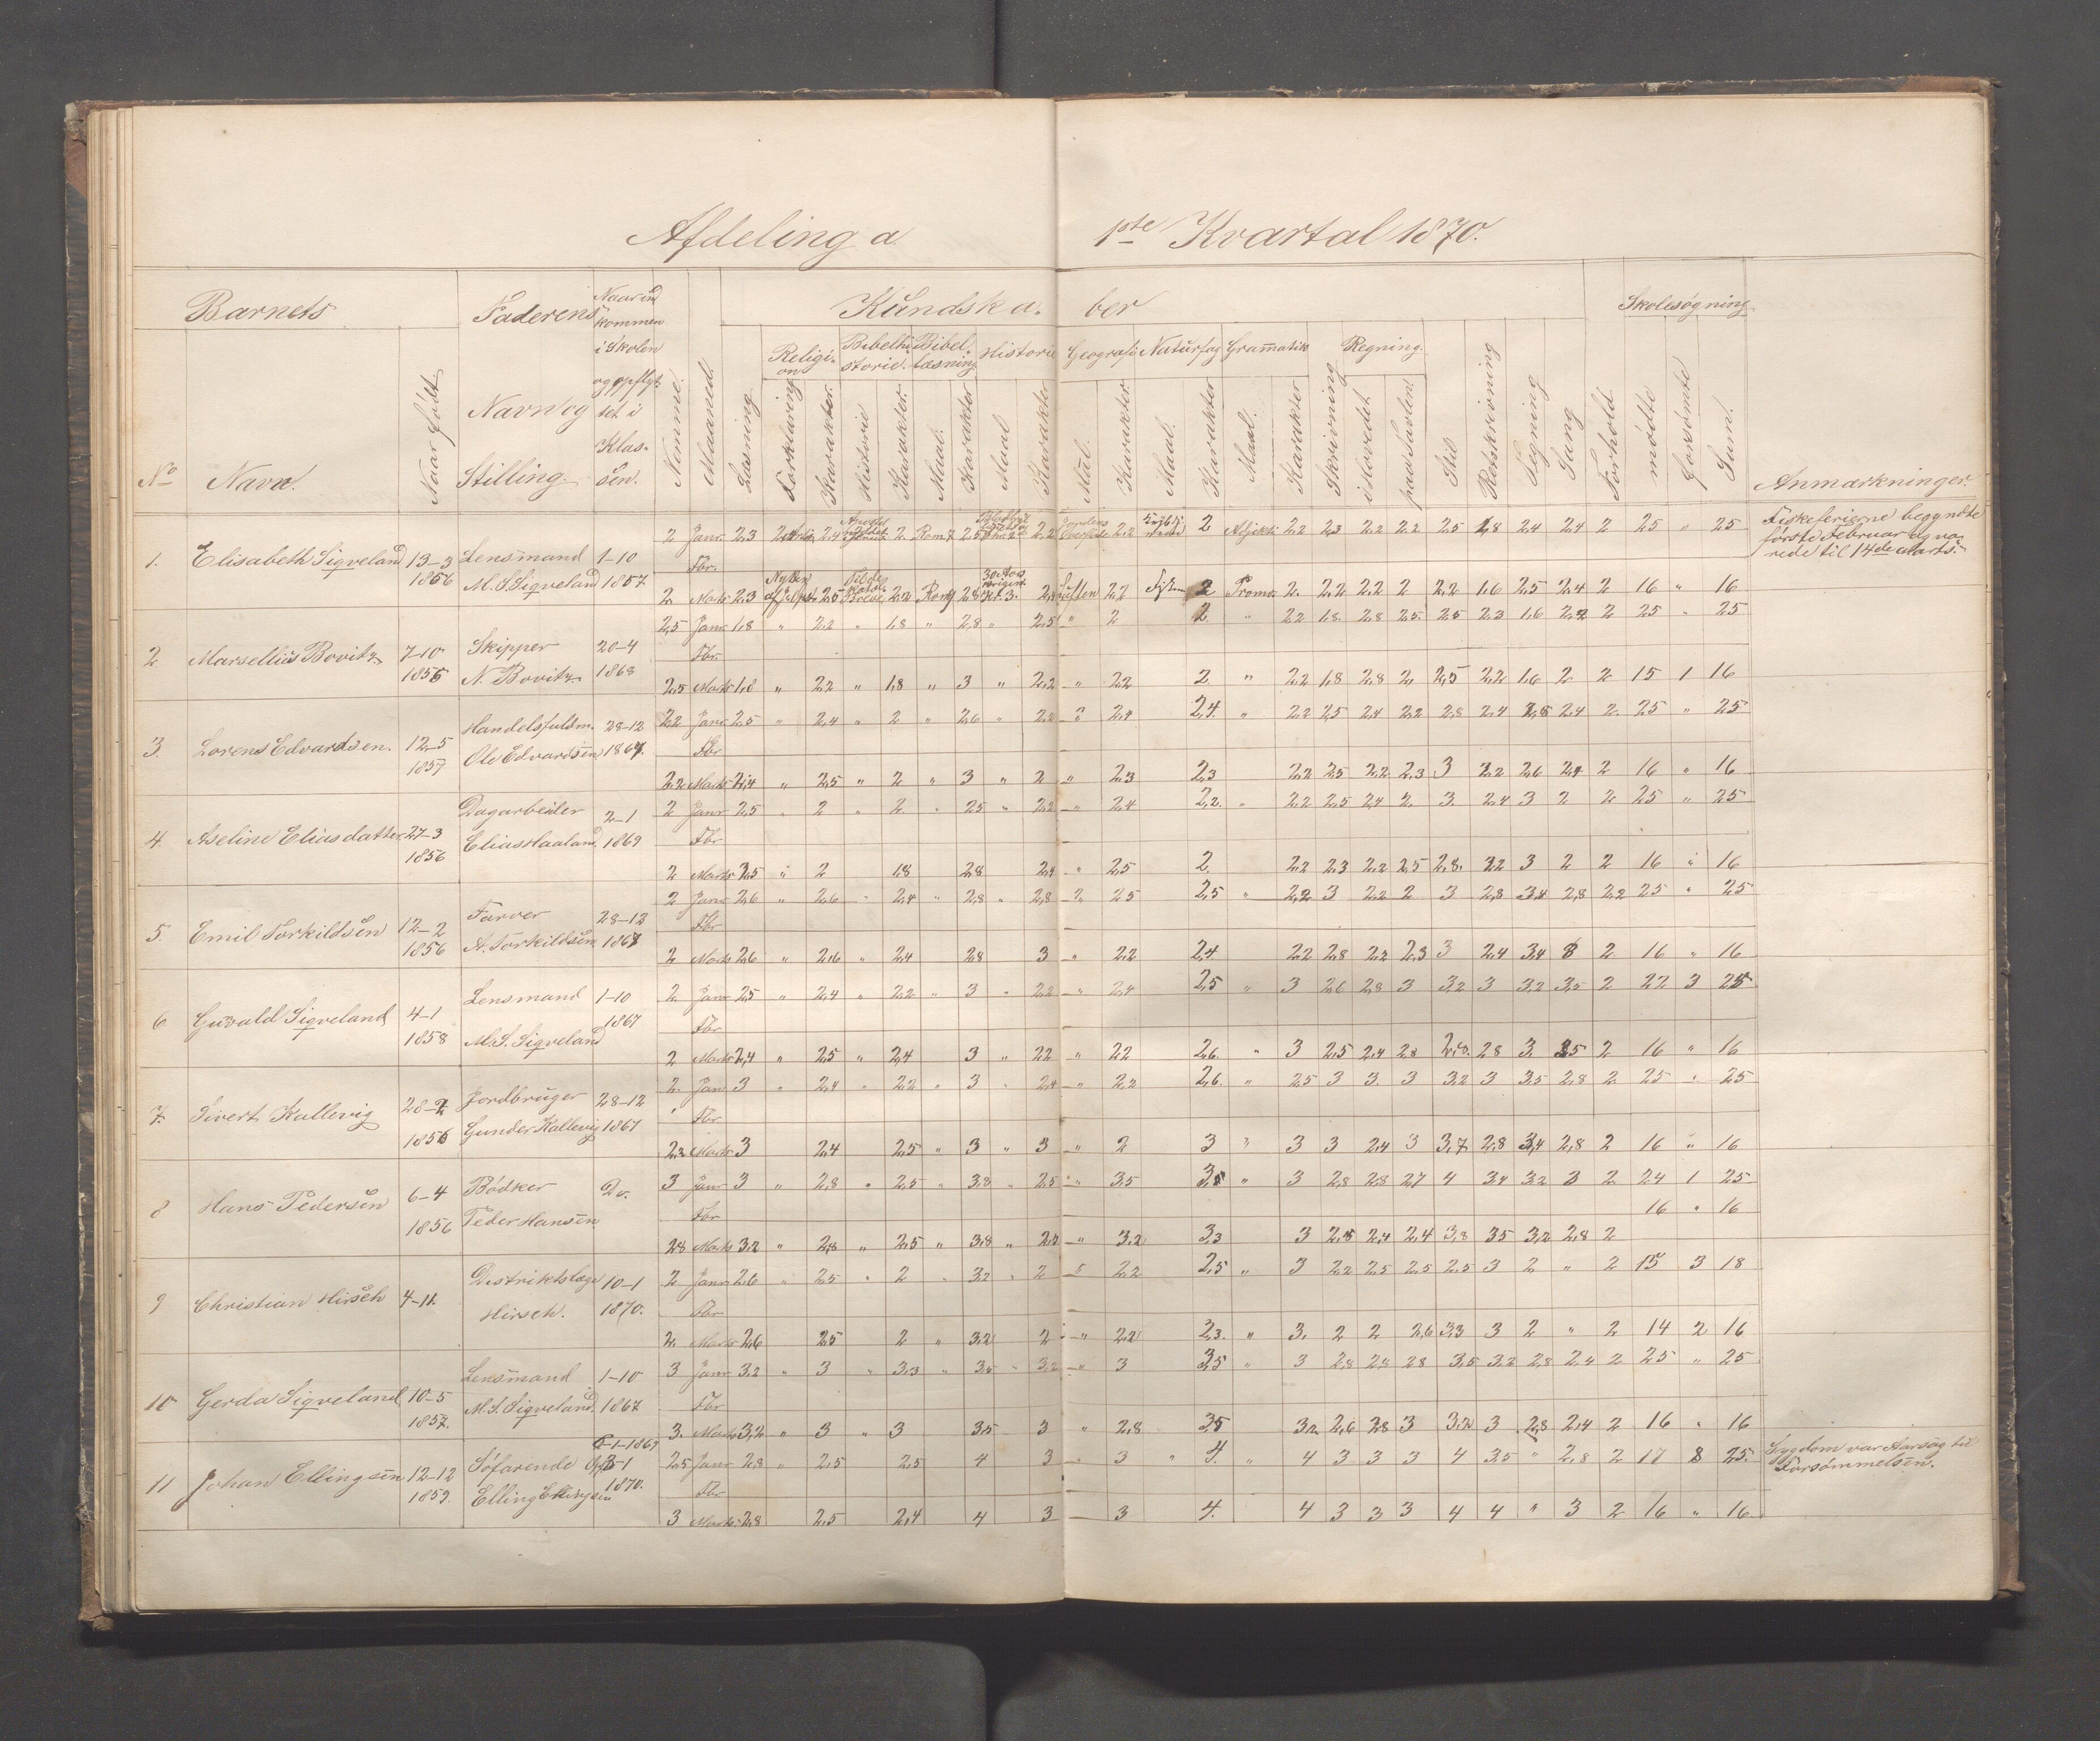 Afdeling a 1ste Kvartal 1870.
Barnets Faderens Naar ind kommen i Skolen og opflyttet i Klassen. Kundskaber Skolesøgning
Religion Bibelhistorie. Bibellæsning Historie Geografi Naturfag Gramatik Regning.
No Navn. Naar født Navn og Stilling. Nemme. Maaned. Læsning Forklaring Karakter. Historie Karakter. Maal. Karakter Maal Karakter Maal. Karakter. Maal. Karakter Maal. Karakter Skrivning i Hovedet. paa Tavlen. Stil Retskrivning Tegning Sang Forhold mødte forsømte Sum. Anmærkninger.
1. Elisabeth Sigveland 13-3 1856 Lensmand M. S. Sigveland 1-10 1867
2 Janr 2,3 2,4 2 Rom 7 2,5 2,2 Jordens Overflade 2,2 2 Adjekti 2,2 2,3 2,2 2,2 2,5 1,8 2,4 2,4 2 25 " 25
Fiskeferierne begyndte
første Februar og va-
rede til 14de Marts.
Fbr.
2 Marts 2,3 2,5 2,2 Rom 2,8 2,4 Luften 2,2 2 Pronom 2. 2,2 2,2 2 2,2 1,6 2,5 2,4 2 16 " 16
2 Marsellius Bovitz 7-10 1856 Skipper N. Bovitz 20-4 1868
2,5 Janr 1,8 " 2,2 " 1,8 " 2,8 " 2,5 " 2 2. " 2,2 1,8 2,8 2,5 2,5 2,3 1,6 2,2 2 25 " 25
Fbr.
2,5 Marts 1,8 " 2,2 " 1,8 " 3 " 2,2 " 2,2 2 " 2,2 1,8 2,8 2, 2,5 2,2 1,6 2 2 15 1 16
3. Lorens Edvardsen. 12-5 1857 Handelsfuldm. Ole Edvardsen 28-12 1867.
2,2 Janr 2,5 " 2,4 " 2 " 2,6 " 2,2 " 2,4 2,4. " 2,2 2,5 2,4 2,2 2,8 2,4 2,8 2,4 2. 25 " 25
Fbr
2,2 Marts 2,4 " 2,5 " 2 " 3 " 2 " 2,3 2,3 2,2 2,5 2,2 2,3 3 2,2 2,6 2,4 2 16 " 16
4. Aseline Eliasdatter 27-3 1856 Dagarbeider Elias Haaland 2-1 1869
2 Janr 2,5 " 2 " 2 " 2,5 " 2,2 " 2,4 2,2. " 2,2 2,5 2,4 2. 3. 2,4 3 2 2 25 " 25
Fbr
2 Marts 2,5 " 2 1,8 2,8 2,4 " 2,5 2. 2,2 2,3 2,2 2,5 2,8. 2,2 3 2 2 16 " 16
5. Emil Torkildsen 12-2 1856 Farver A. Torkildsen 28-12 1867
2 Janr 2,6 " 2,6 " 2,4 " 2,8 " 2,8 " 2,5 2,5 " 2,2 3 2,2 2 3 2,8 3,4 2,8 2,2 25 " 25
Fbr
2 Marts 2,6 " 2,6 " 2,4 2,8 3 " 2,2 2,4 2,2 2,8 2,2 2,3 3 2,4 3,4 3 2 16 " 16
6 Guvald Sigveland 4-1 1858 Lensmand M. S. Sigveland 1-10 1867
2. Janr 2,5 " 2,4 " 2,2 " 3 " 2,2 " 2,4 2,5 " 3 2,6 2,8 3 3,2 3 3,2 3,5 2 22 3 25
Fbr
2 Marts 2,4 " 2,5 " 2,4 3 " 2,2 " 2,2 2,6. " 3 2,5 2,4 2,8 2,8. 2,8 3. 3,5 2 16 " 16
7. Sivert Kallevig 28-2 1856 Jordbruger Gunder Kallevig 28-12 1867
2. Janr 3 " 2,4 " 2,2 " 3 " 2,4 " 2,2 2,6. " 2,5 3 3. 3 3,2 3 3,5 2,8 2. 25 " 25
Fbr
2,2 Marts 3 2,4 2,5 " 3 " 3 " 2 3 " 3 3 2,4 3 3,7 2,8 3,4 2,8 2 16 " 16
8 Hans Pedersen 6-4 1856 Bødker Peder Hansen Do.
3 Janr 3 " 2,8 " 2,5 " 3,8 " 2,5 " 3,5 3,5 " 3 2,8 2,8 2,7 4 3,4 3,2 3 2. 24 1 25
Fbr 16 " 16
2,8 Marts 3,2 " 2,8 " 2,5 " 3,8 " 2,2 " 3,2 3,3 3 2,8 2,4 2,4 3,8 3,5 3,2 2,8 2
9 Christian Hirsch 4-11. Distriktslæge Hirsch. 10-1 1870.
2 Janr 2,6 " 2,5 " 2 " 3,2 " 2 2,2 2,5 " 3 2,2 2,5 2,5 2,5 3 2 " 2 15 3 18
Fbr
2. Marts 2,6 2,5 2 " 3,2 2 " 2,2 2,3. " 3. 2 2 2,6 3,3 3 2 " 2 14 2 16
10 Gerda Sigveland 10-5 1857. Lensmand M. S. Sigveland. 1-10 1867
3 Janr 3,2 " 3 " 3,3 " 3,5 " 3,2 " 3 3,5 " 3 2,8 2,8 2,8 3,5 3,2 2,8 2,4 2 25 " 25
Fbr
3. Marts 3,2 " 3 " 3 3,5 3 " 2,8 3,5 3,2 2,6 2,8 3 3,2 3 2,8 2,4 2 16 " 16
11 Johan Ellingsen 12-12 1859. Søfarende Elling Ellingsen 6-1-1869 Opf. 3-1 1870.
2,5 Janr 2,8 " 2,5 2,5 4 3 " 3 " 4. " 4 3 3 3 4 3,5 " 2,8 2 17 8 25.
Sygdom var Aarsag til
Forsømmelsen.
Fbr
3 Marts 2,8 2,5 2,4 4 3 3 4. 4 3 3 3 4 4 " 3 2 16 " 16